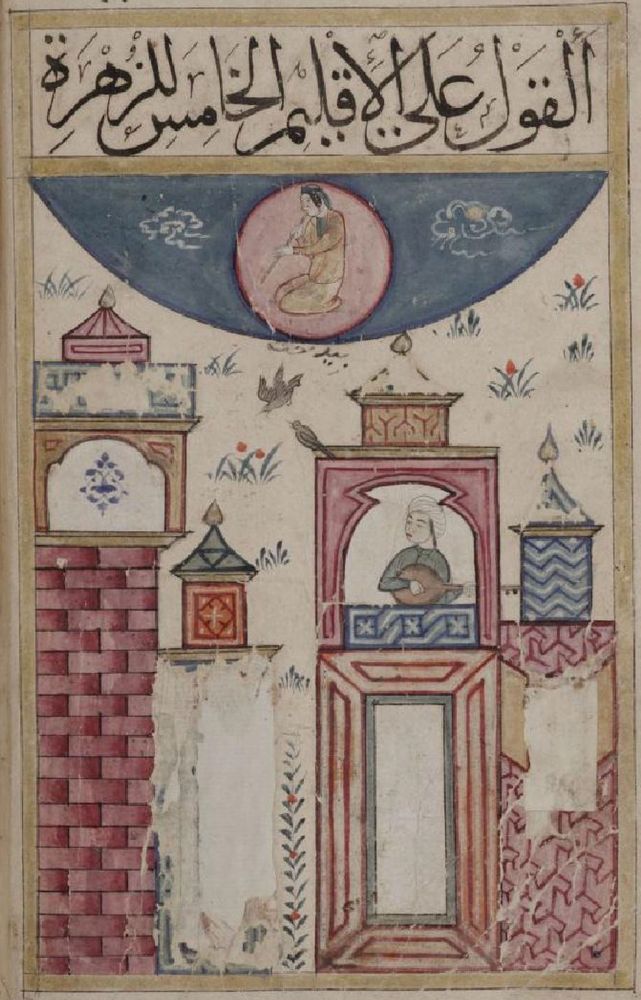 أَلْقَوْلُ عَلَى الْإِقْلِيمِ الْخَامِسِ لِلزُّهْرَةِ